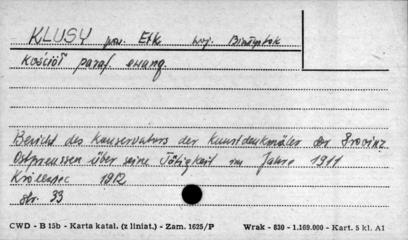 KLUSY pow. Ełk woj. Białystok
Kościół paraf. ewang.
Bericht des Konservators der Kunstdenkmäler der Provinz
Ostpreussen über seine Tätigkeit im Jahre 1911
Królewiec 1912
str. 33
CWD - B 15b - Karta katal. (z liniat.) - Zam. 1625/P Wrak - 830 - 1.169.000 - Kart. 5 kl. A1